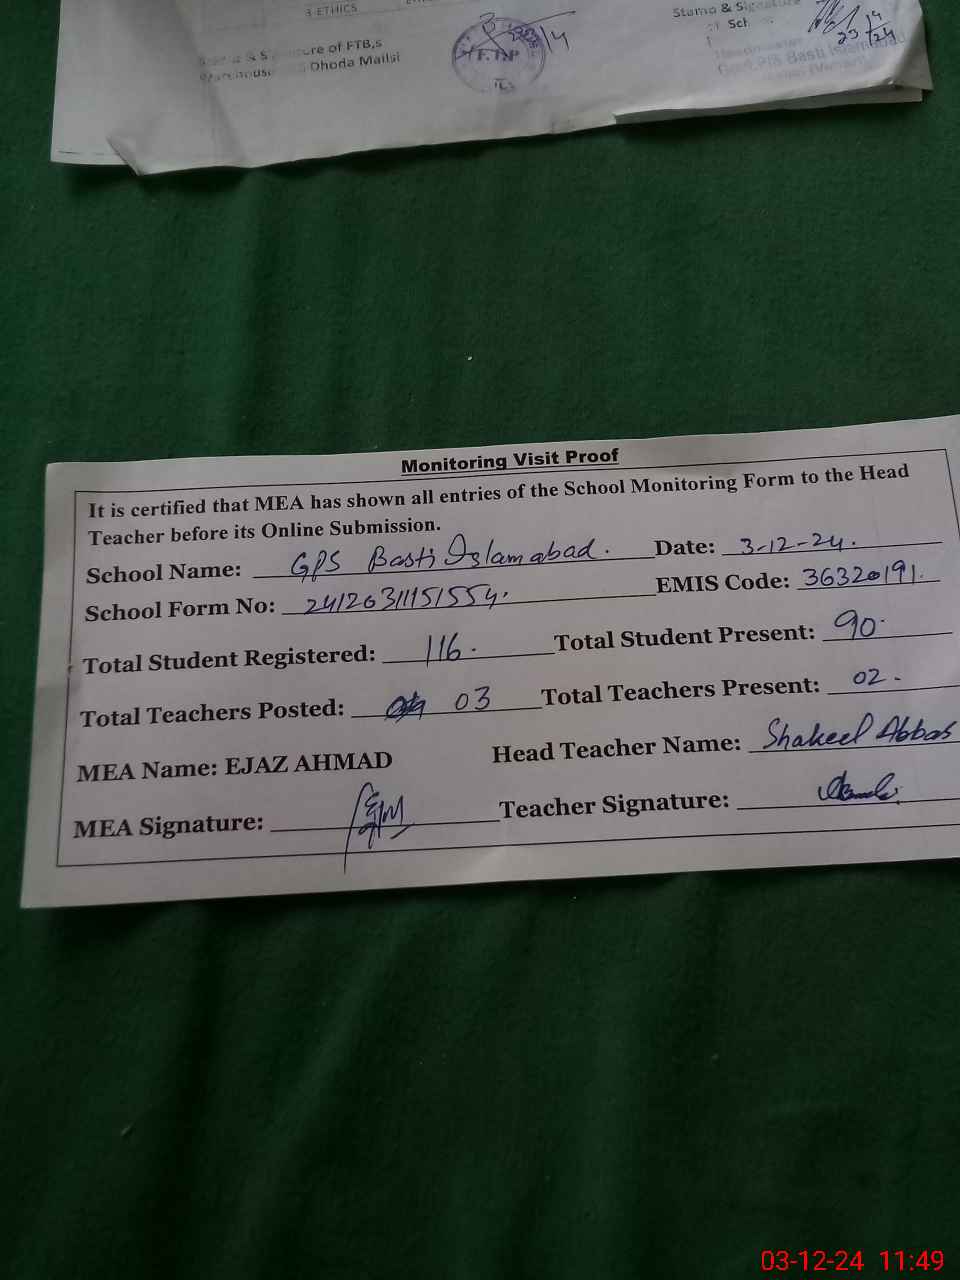 3 ETHICS
Stamp & Signature
23/4/24
ture of FTB,s
Warehouse Dhoda Mailsi
F.TB.P
Headmaster
Govt. P/S Basti Islamabad
Monitoring Visit Proof
It is certified that MEA has shown all entries of the School Monitoring Form to the Head
Teacher before its Online Submission.
School Name: GPS Basti Islamabad. Date: 3-12-24.
School Form No: 2412031151554. EMIS Code: 36320191.
Total Student Registered: 116. Total Student Present: 90.
Total Teachers Posted: 03 Total Teachers Present: 02.
MEA Name: EJAZ AHMAD Head Teacher Name: Shakeel Abbas
MEA Signature: Teacher Signature:
03-12-24 11:49